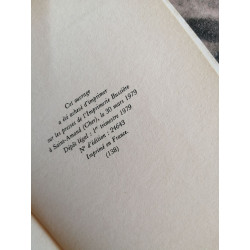 Cet ouvrage
a été achevé d'imprimer
sur les presses de l'Imprimerie Bussière
à Saint-Amand (Cher), le 30 mars 1979
Dépôt légal : 1er trimestre 1979
N° d'édition : 24643
Imprimé en France.
(138)